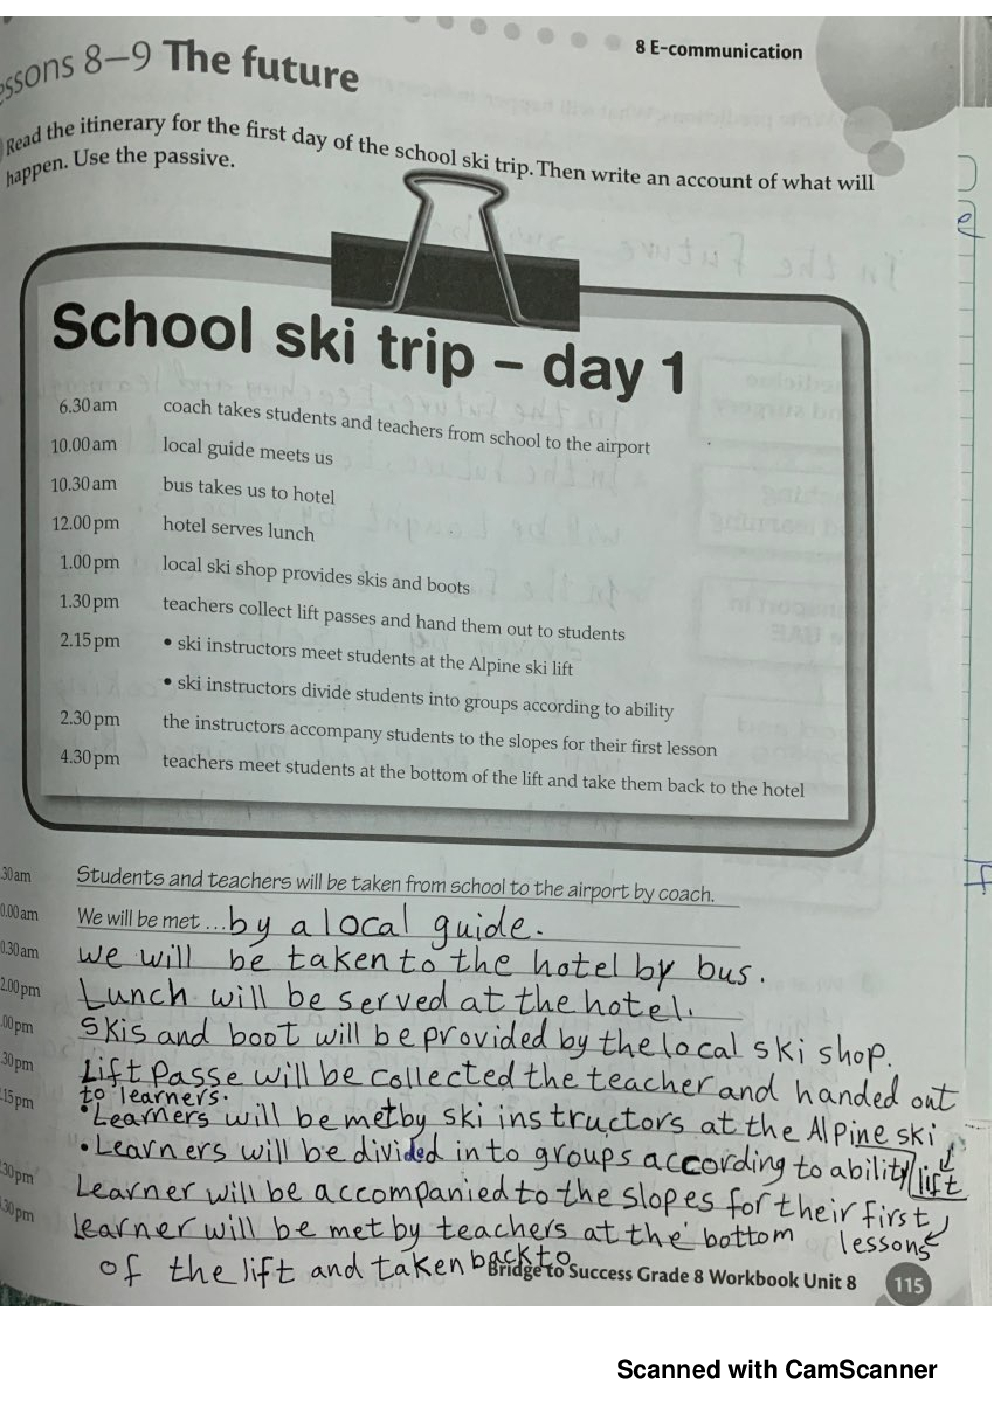 8 E-communication
essons 8–9 The future
Read the itinerary for the first day of the school ski trip. Then write an account of what will
happen. Use the passive.
School ski trip – day 1
6.30 am coach takes students and teachers from school to the airport
10.00 am local guide meets us
10.30 am bus takes us to hotel
12.00 pm hotel serves lunch
1.00 pm local ski shop provides skis and boots
1.30 pm teachers collect lift passes and hand them out to students
2.15 pm • ski instructors meet students at the Alpine ski lift
• ski instructors divide students into groups according to ability
2.30 pm the instructors accompany students to the slopes for their first lesson
4.30 pm teachers meet students at the bottom of the lift and take them back to the hotel
.30am Students and teachers will be taken from school to the airport by coach.
0.00am We will be met ... by a local guide.
0.30am we will be taken to the hotel by bus.
2.00pm Lunch will be served at the hotel.
.00pm Skis and boot will be provided by the local ski shop.
.30pm Lift Passe will be collected the teacher and handed out
to learners.
.15pm • Learners will be met by ski instructors at the Alpine ski
lift
• Learners will be divided into groups according to ability
.30pm Learner will be accompanied to the slopes for their first
lessons
.30pm learner will be met by teachers at the bottom
of the lift and taken back to
Bridge to Success Grade 8 Workbook Unit 8 115
Scanned with CamScanner